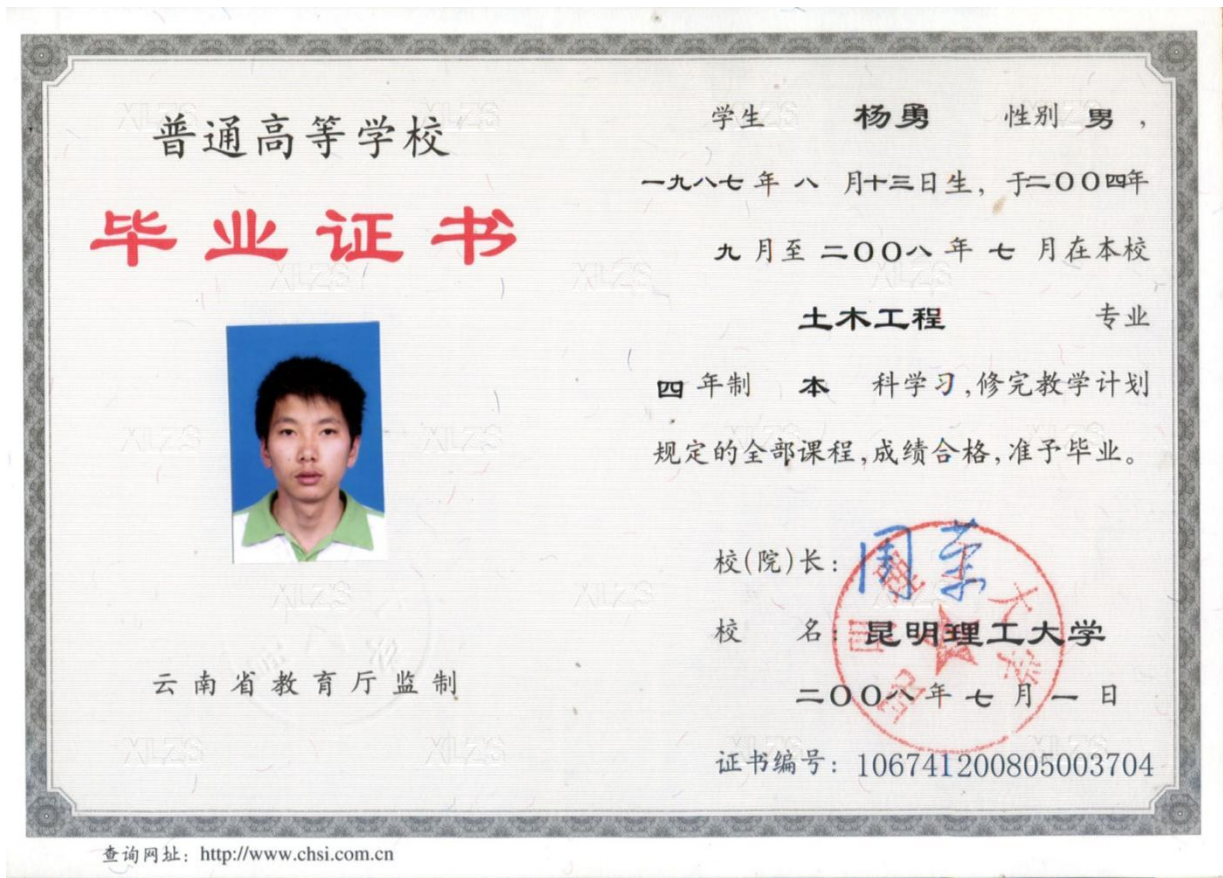 普通高等学校
毕业证书
云南省教育厅监制
学生 杨勇 性别 男,
一九八七年 八 月十三日生, 于二〇〇四年
九 月至 二〇〇八 年 七 月在本校
土木工程 专业
四 年制 本 科学习,修完教学计划
规定的全部课程,成绩合格,准予毕业。
校(院)长: 周荣
校 名: 昆明理工大学
二〇〇八年 七 月 一 日
证书编号: 106741200805003704
查询网址: http://www.chsi.com.cn
XLZS